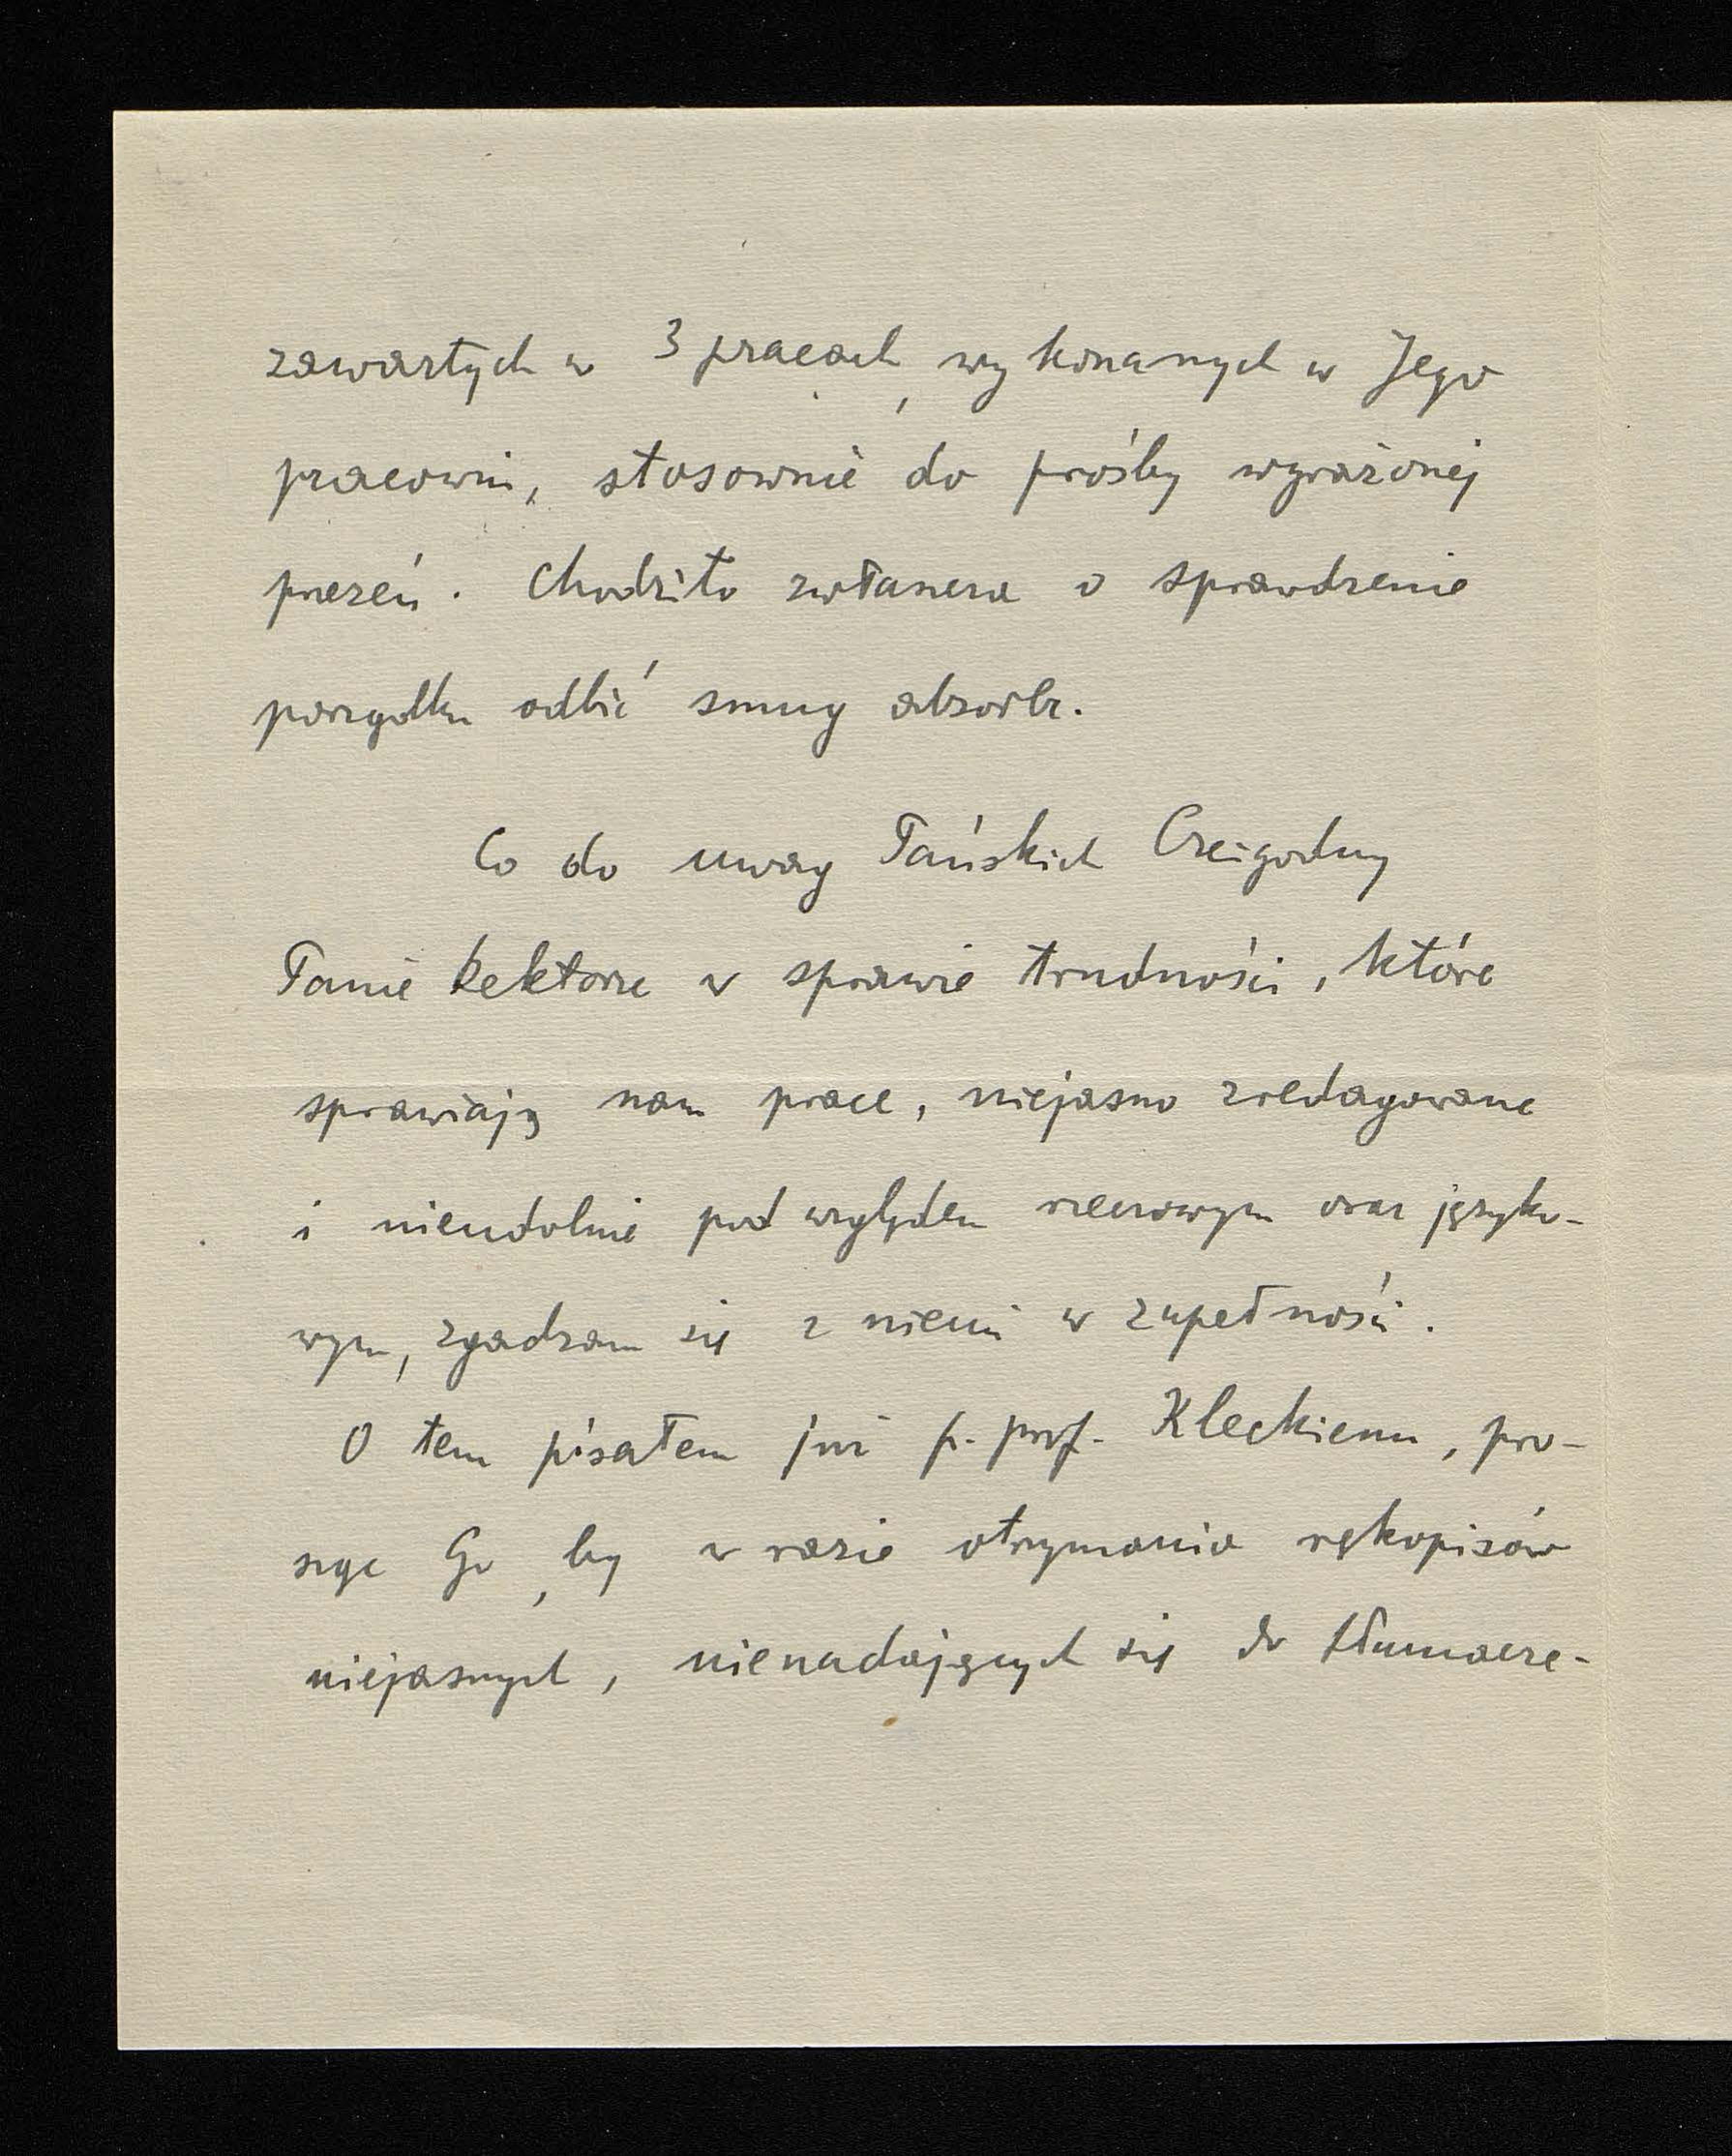 zawartych w 3 pracach, wykonanych w Jego
pracowni, stosownie do prośby wyrażonej
przezeń. Chodziło zwłaszcza o sprawdzenie
porządku odbić smug absorbc.
Co do uwag Pańskich Czcigodny
Panie Rektorze w sprawie trudności, które
sprawiają nam prace, niejasno zredagowane
i nieudolnie pod względem rzeczowym oraz języko-
wym, zgadzam się z niemi w zupełności.
O tem pisałem już p. prof. Kleckiemu, pro-
sząc Go, by w razie otrzymania rękopisów
niejasnych, nienadających się do tłumacze-